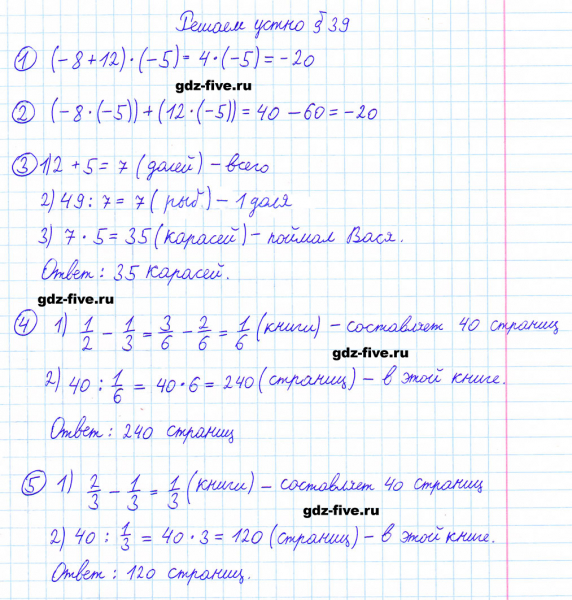 Решаем устно § 39
① (-8+12)·(-5)=4·(-5)=-20
gdz-five.ru
② (-8·(-5))+(12·(-5))=40-60=-20
③ 1) 2+5=7 (долей) - всего
2) 49:7=7 (рыб) - 1 доля
3) 7·5=35 (карасей) - поймал Вася.
Ответ: 35 карасей.
gdz-five.ru
④ 1) 1/2 - 1/3 = 3/6 - 2/6 = 1/6 (книги) - составляет 40 страниц
gdz-five.ru
2) 40 : 1/6 = 40·6 = 240 (страниц) - в этой книге.
Ответ: 240 страниц
⑤ 1) 2/3 - 1/3 = 1/3 (книги) - составляет 40 страниц
gdz-five.ru
2) 40 : 1/3 = 40·3 = 120 (страниц) - в этой книге.
Ответ: 120 страниц.